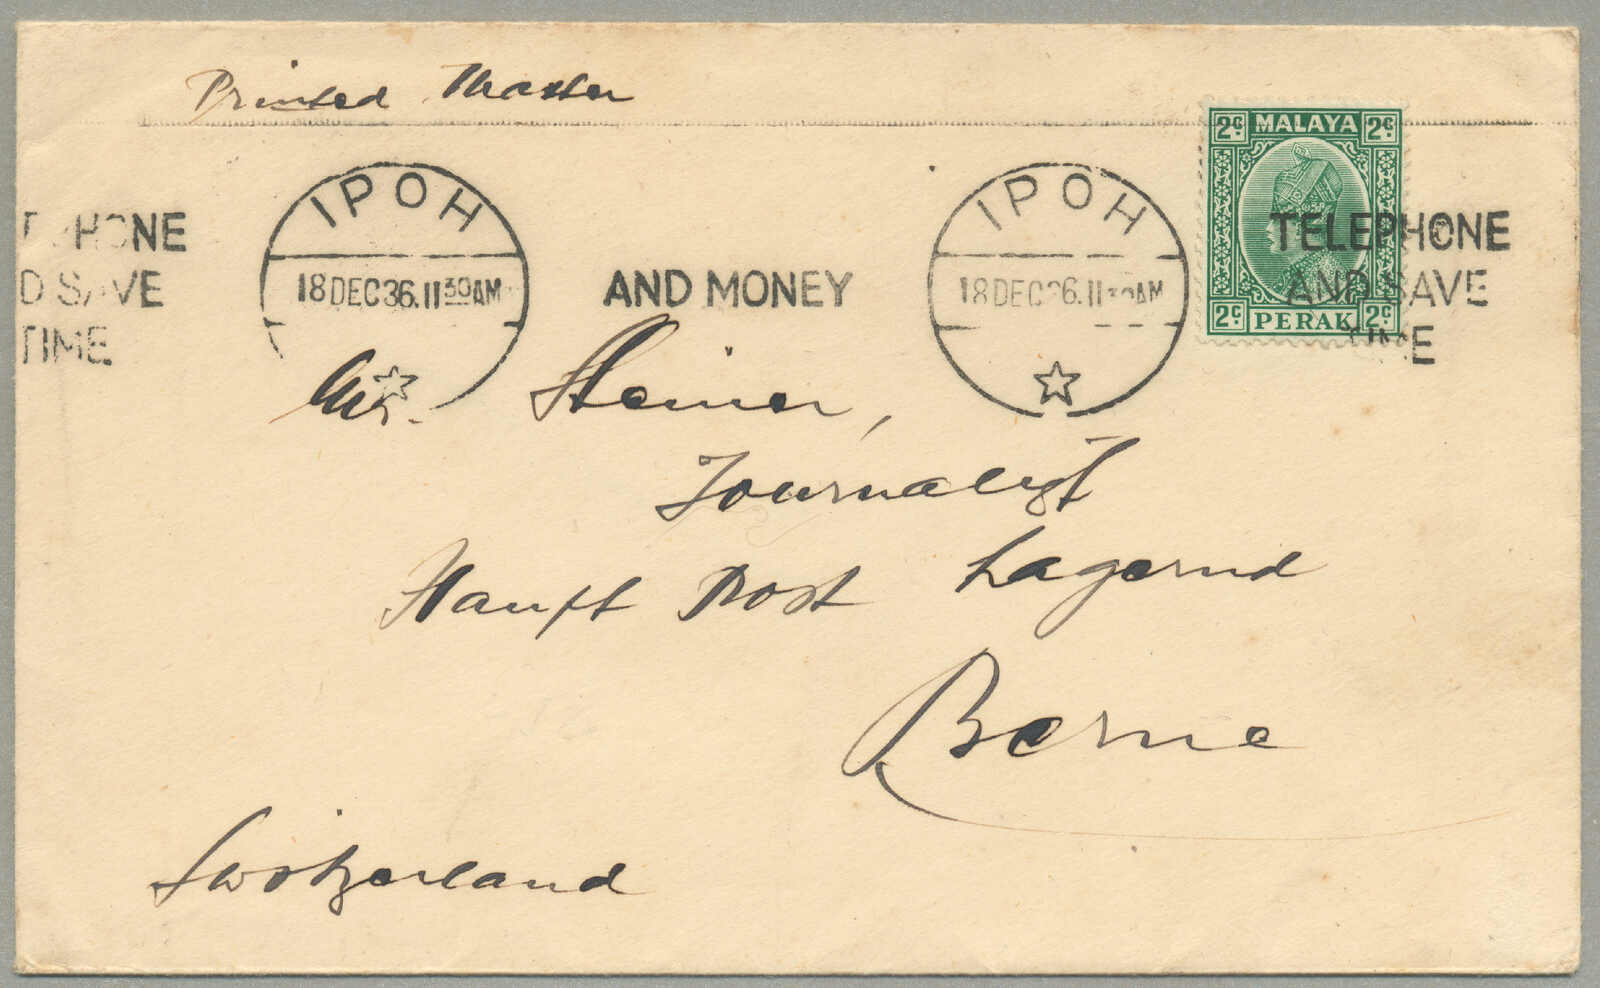 Printed Matter
2C MALAYA 2C
IPOH IPOH
TELEPHONE
HONE
18 DEC 36. 11 30 AM AND MONEY 18 DEC 36. 11 30 AM
AND SAVE
D SAVE
2C PERAK 2C
TIME
TIME
Mr. Steiner,
Journalist
Haupt Post Lagernd
Berne
Switzerland